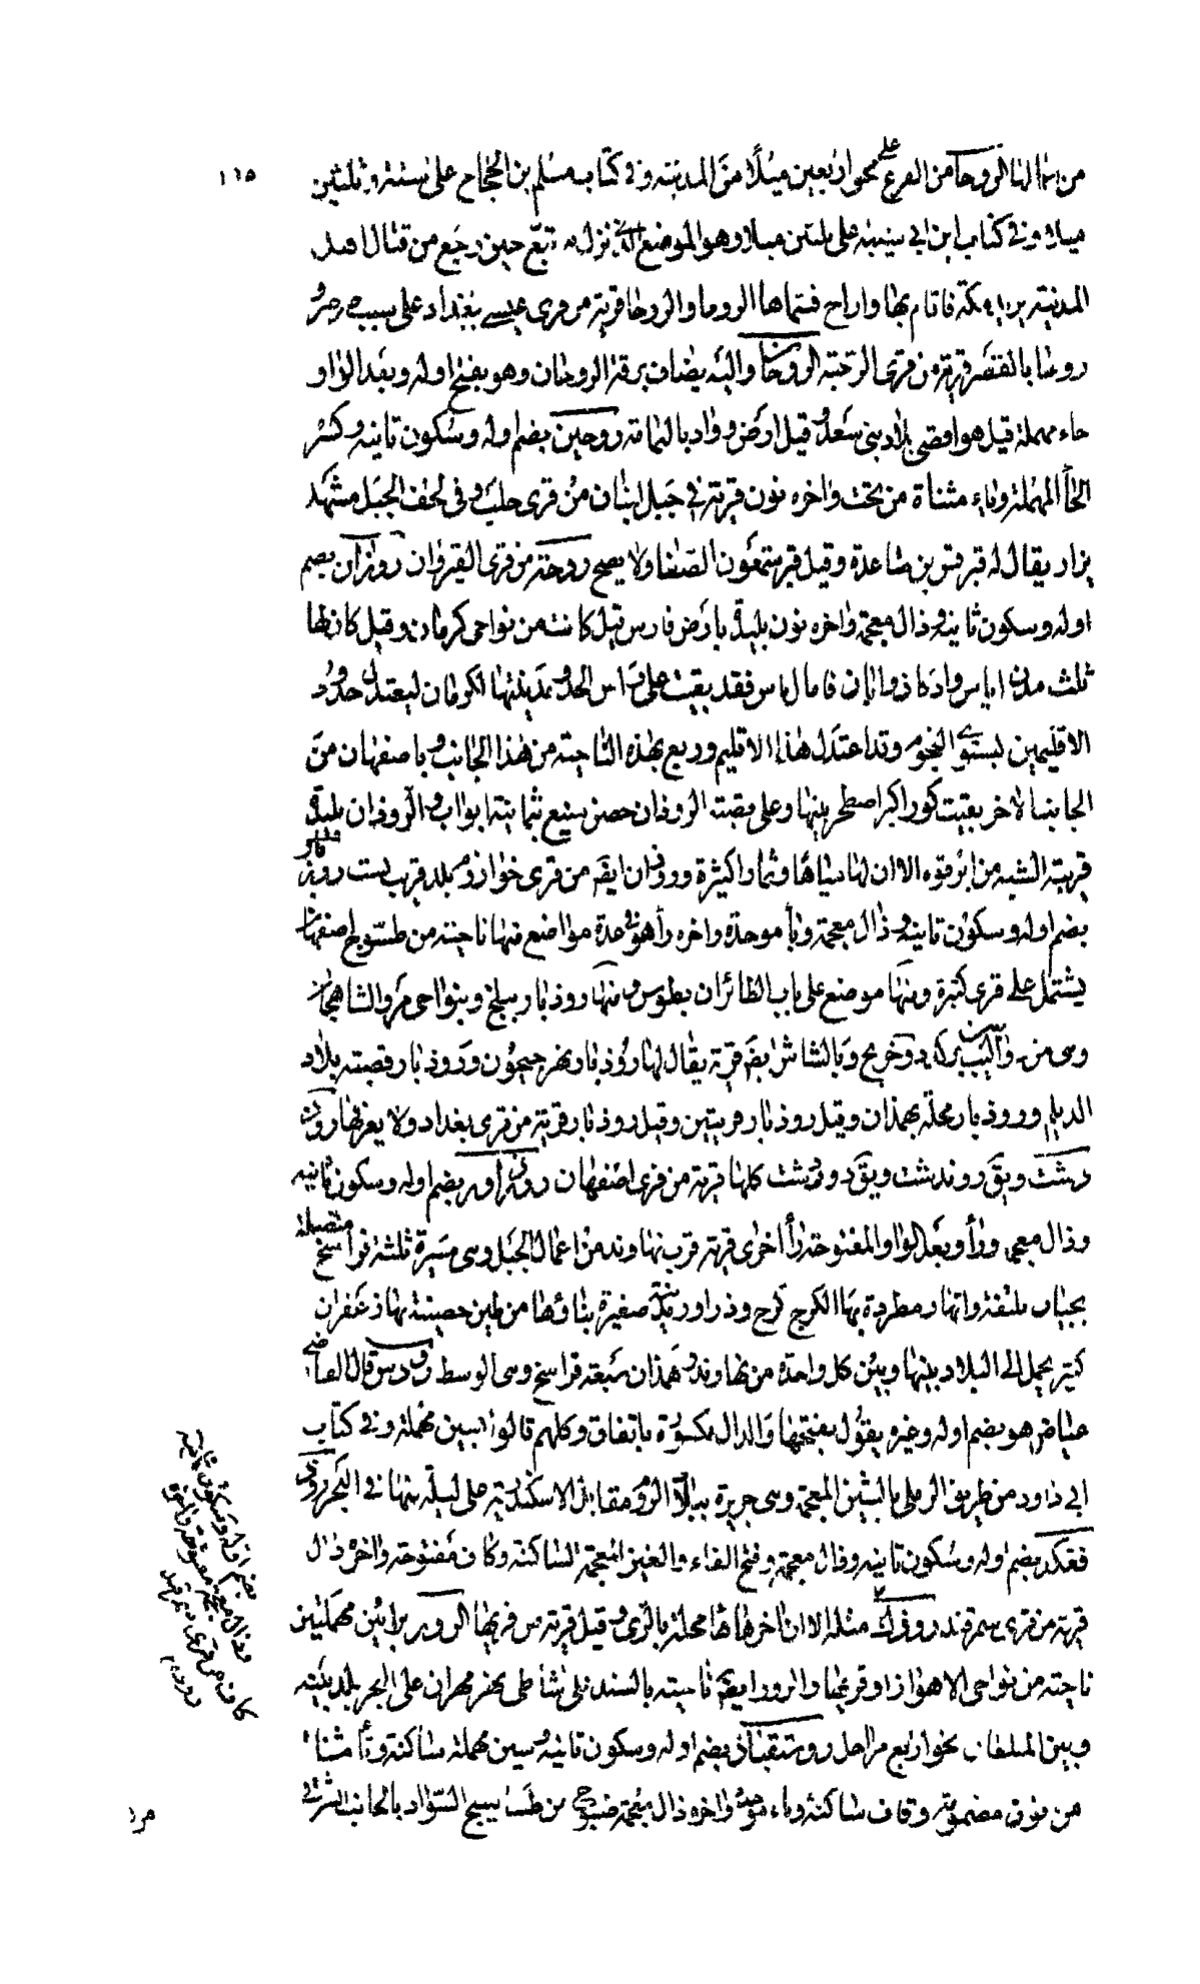 ١١٥
الروحا من الفرع على نحو اربعين ميلا من المدينة وفي كتاب مسلم بن الحجاج على ستة وثلثين
ميلا وفي كتاب ابن ابي شيبة على ثلثين ميلا وهو الموضع الذي نزل به تبع حين رجع من قتال اهل
المدينة يريد مكة فاقام بها واراح فسماها الروحا والروحا قرية من قرى بغداد على
روحا بالقصر قرية من قرى الرحبة الروحان واليه يضاف برقة الروحان وهو بفتح اوله وبعد الواو
حاء مهملة قيل هو اقصى بلاد بني سعد وقيل ارض وواد باليمامة روحين بضم اوله وسكون ثانيه وكسر
الحاء المهملة وياء مثناة من تحت واخره نون قرية في جبل لبنان من قرى حلب وفي لحف الجبل مشهد
يزار يقال له قبر قس بن ساعدة وقيل قبر شمعون الصفا ولا يصح روحة من قرى القيروان روذان بضم
اوله وسكون ثانيه وذال معجمة واخره نون بليدة بارض فارس قيل كانت من نواحي كرمان وقيل كانها
ثلث مدن اناس واذكان وابان فاما اناس فقد بقيت على راس الحد ومدينتها لكرمان ليعتدل حدود
الاقليمين ليستوي التخوم وقد اعتدل هذا الاقليم وربع بهذه الناحية من هذا الجانب وباصفهان من
الجانب الاخر بقيت كورا كبر اصطخر بينها وعلى قصبة الروذان حصن منيع بثمانية ابواب والروذان بليدة
قريبة الشبه من ابرقوه الا ان لها مياها وثمارا كثيرة وروذان ايضا من قرى خوارزم وبلد قرب بست روذبار
بضم اوله وسكون ثانيه وذال معجمة وباء موحدة واخره راء هو في عدة مواضع منها ناحية من طسوج اصفهان
يشتمل على قرى كثيرة ومنها موضع على باب الطابران بطوس ومنها روذبار ببلخ وبنواحي مرو الشاهجان
وبالشاش ايضا قرية يقال لها روذبار نهر جيحون وروذبار قصبة بلاد
الديلم وروذبار محلة بهمذان وقيل روذبار قريتين وقيل روذبار قرية من قرى بغداد ولا يعرفها روذ
دشت ويق روندشت ويق دوذشت كلها قرية من قرى اصفهان روذراور بضم اوله وسكون ثانيه
وذال معجمة وراء وبعد الواو المفتوحة راء اخرى قرية قرب نهاوند من اعمال الجبل وهي مسيرة ثلثة فراسخ متصلة
بجنان ملتفة وانهار مطردة بها الكرج كرج وذراور مدينة صغيرة بناؤها من طين حصينة بها زعفران
كثير يحمل الى البلاد بينها وبين كل واحدة من نهاوند وهمذان سبعة فراسخ وهي الوسط رودس قال القاضي
عياض هو بضم اوله وغيره يقول بفتحها والدال مكسورة باتفاق وكلهم قالوا بسين مهملة وفي كتاب
ابي داود من طريق الرملي بالشين المعجمة وهي جزيرة ببلاد الروم مقابل الاسكندرية على ليلة منها في البحر روذ
فغكد بضم اوله وسكون ثانيه وذال معجمة وفتح الفاء والغين المعجمة الساكنة وكاف مفتوحة واخره ذال
قرية من قرى سمرقند روذفك مثله الا ان اخرها محلة بالري وقيل قرية من قريها الرور براءين مهملتين
ناحية من نواحي الاهواز او قربها والرور ايضا ناحية بالسند على شاطي نهر مهران على البحر بلد بينه
وبين الملتان نحو اربع مراحل روستقباذ بضم اوله وسكون ثانيه وسين مهملة ساكنة وتاء مثناة
من فوق مضمومة وقاف ساكنة وباء موحدة واخره ذال معجمة طسوج من طساسيج السواد بالجانب الشرقي
بضم اوله وسكون ثانيه